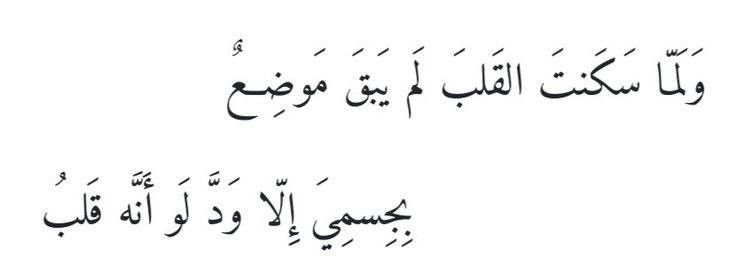 وَلَمّا سَكَنتَ القَلبَ لَم يَبقَ مَوضِعٌ
بِجِسمِيَ إِلّا وَدَّ لَو أَنَّه قَلبُ